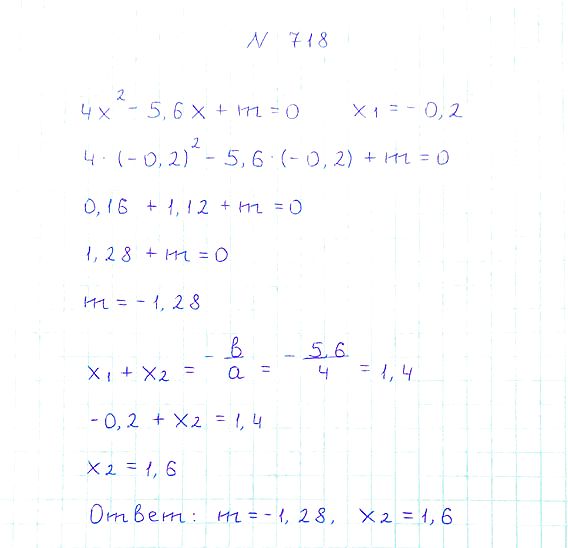 N 718
4x² - 5,6x + m = 0 x₁ = - 0,2
4 · (- 0,2)² - 5,6 · (- 0,2) + m = 0
0,16 + 1,12 + m = 0
1,28 + m = 0
m = - 1,28
x₁ + x₂ = - в/а = - 5,6/4 = 1,4
- 0,2 + x₂ = 1,4
x₂ = 1,6
Ответ: m = - 1,28, x₂ = 1,6